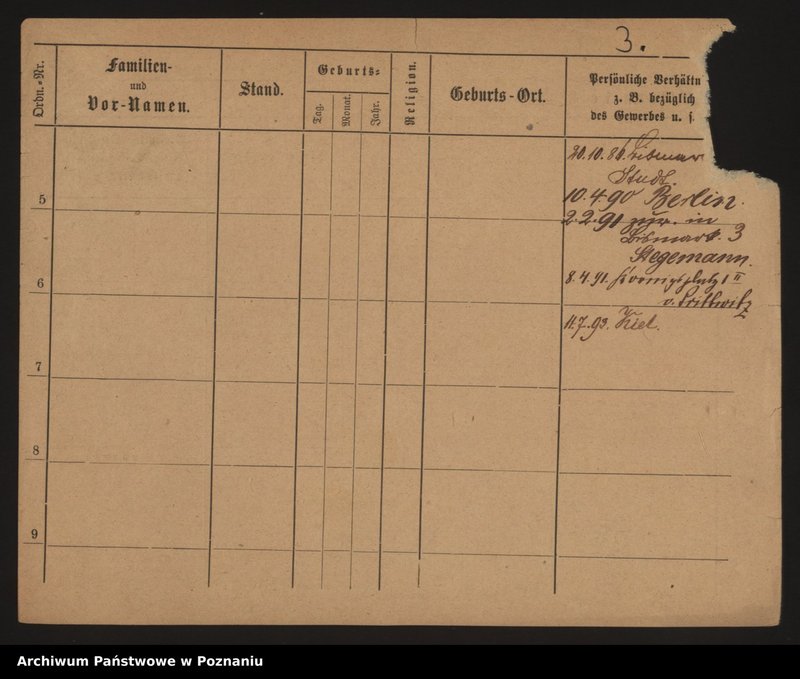 3.
Ordn.-Nr.
Familien-
und
Vor-Namen.
Stand.
Geburts-
Tag.
Monat.
Jahr.
Religion.
Geburts-Ort.
Persönliche Verhältn
z. B. bezüglich
des Gewerbes u. s.
20.10.86. Bismar
Studt.
5
10.4.90 Berlin.
2.2.91 zur. in
Bismark. 3
Stegemann.
6
8.4.91. II
v. Prittwitz
11.7.93. Kiel.
7
8
9
Archiwum Państwowe w Poznaniu